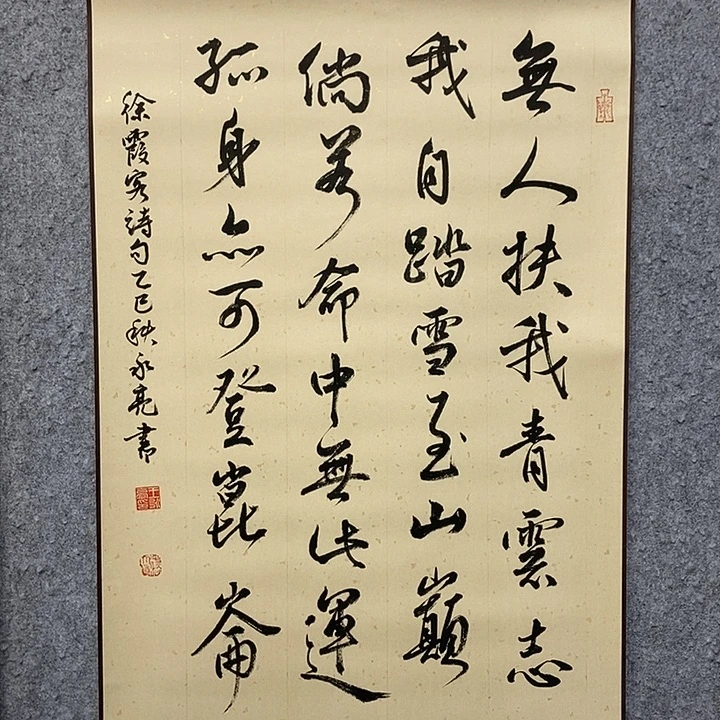 無人扶我青雲志
我自踏雪至山巔
倘若命中無此運
孤身亦可登崑崙
徐霞客詩句乙巳秋永亮書